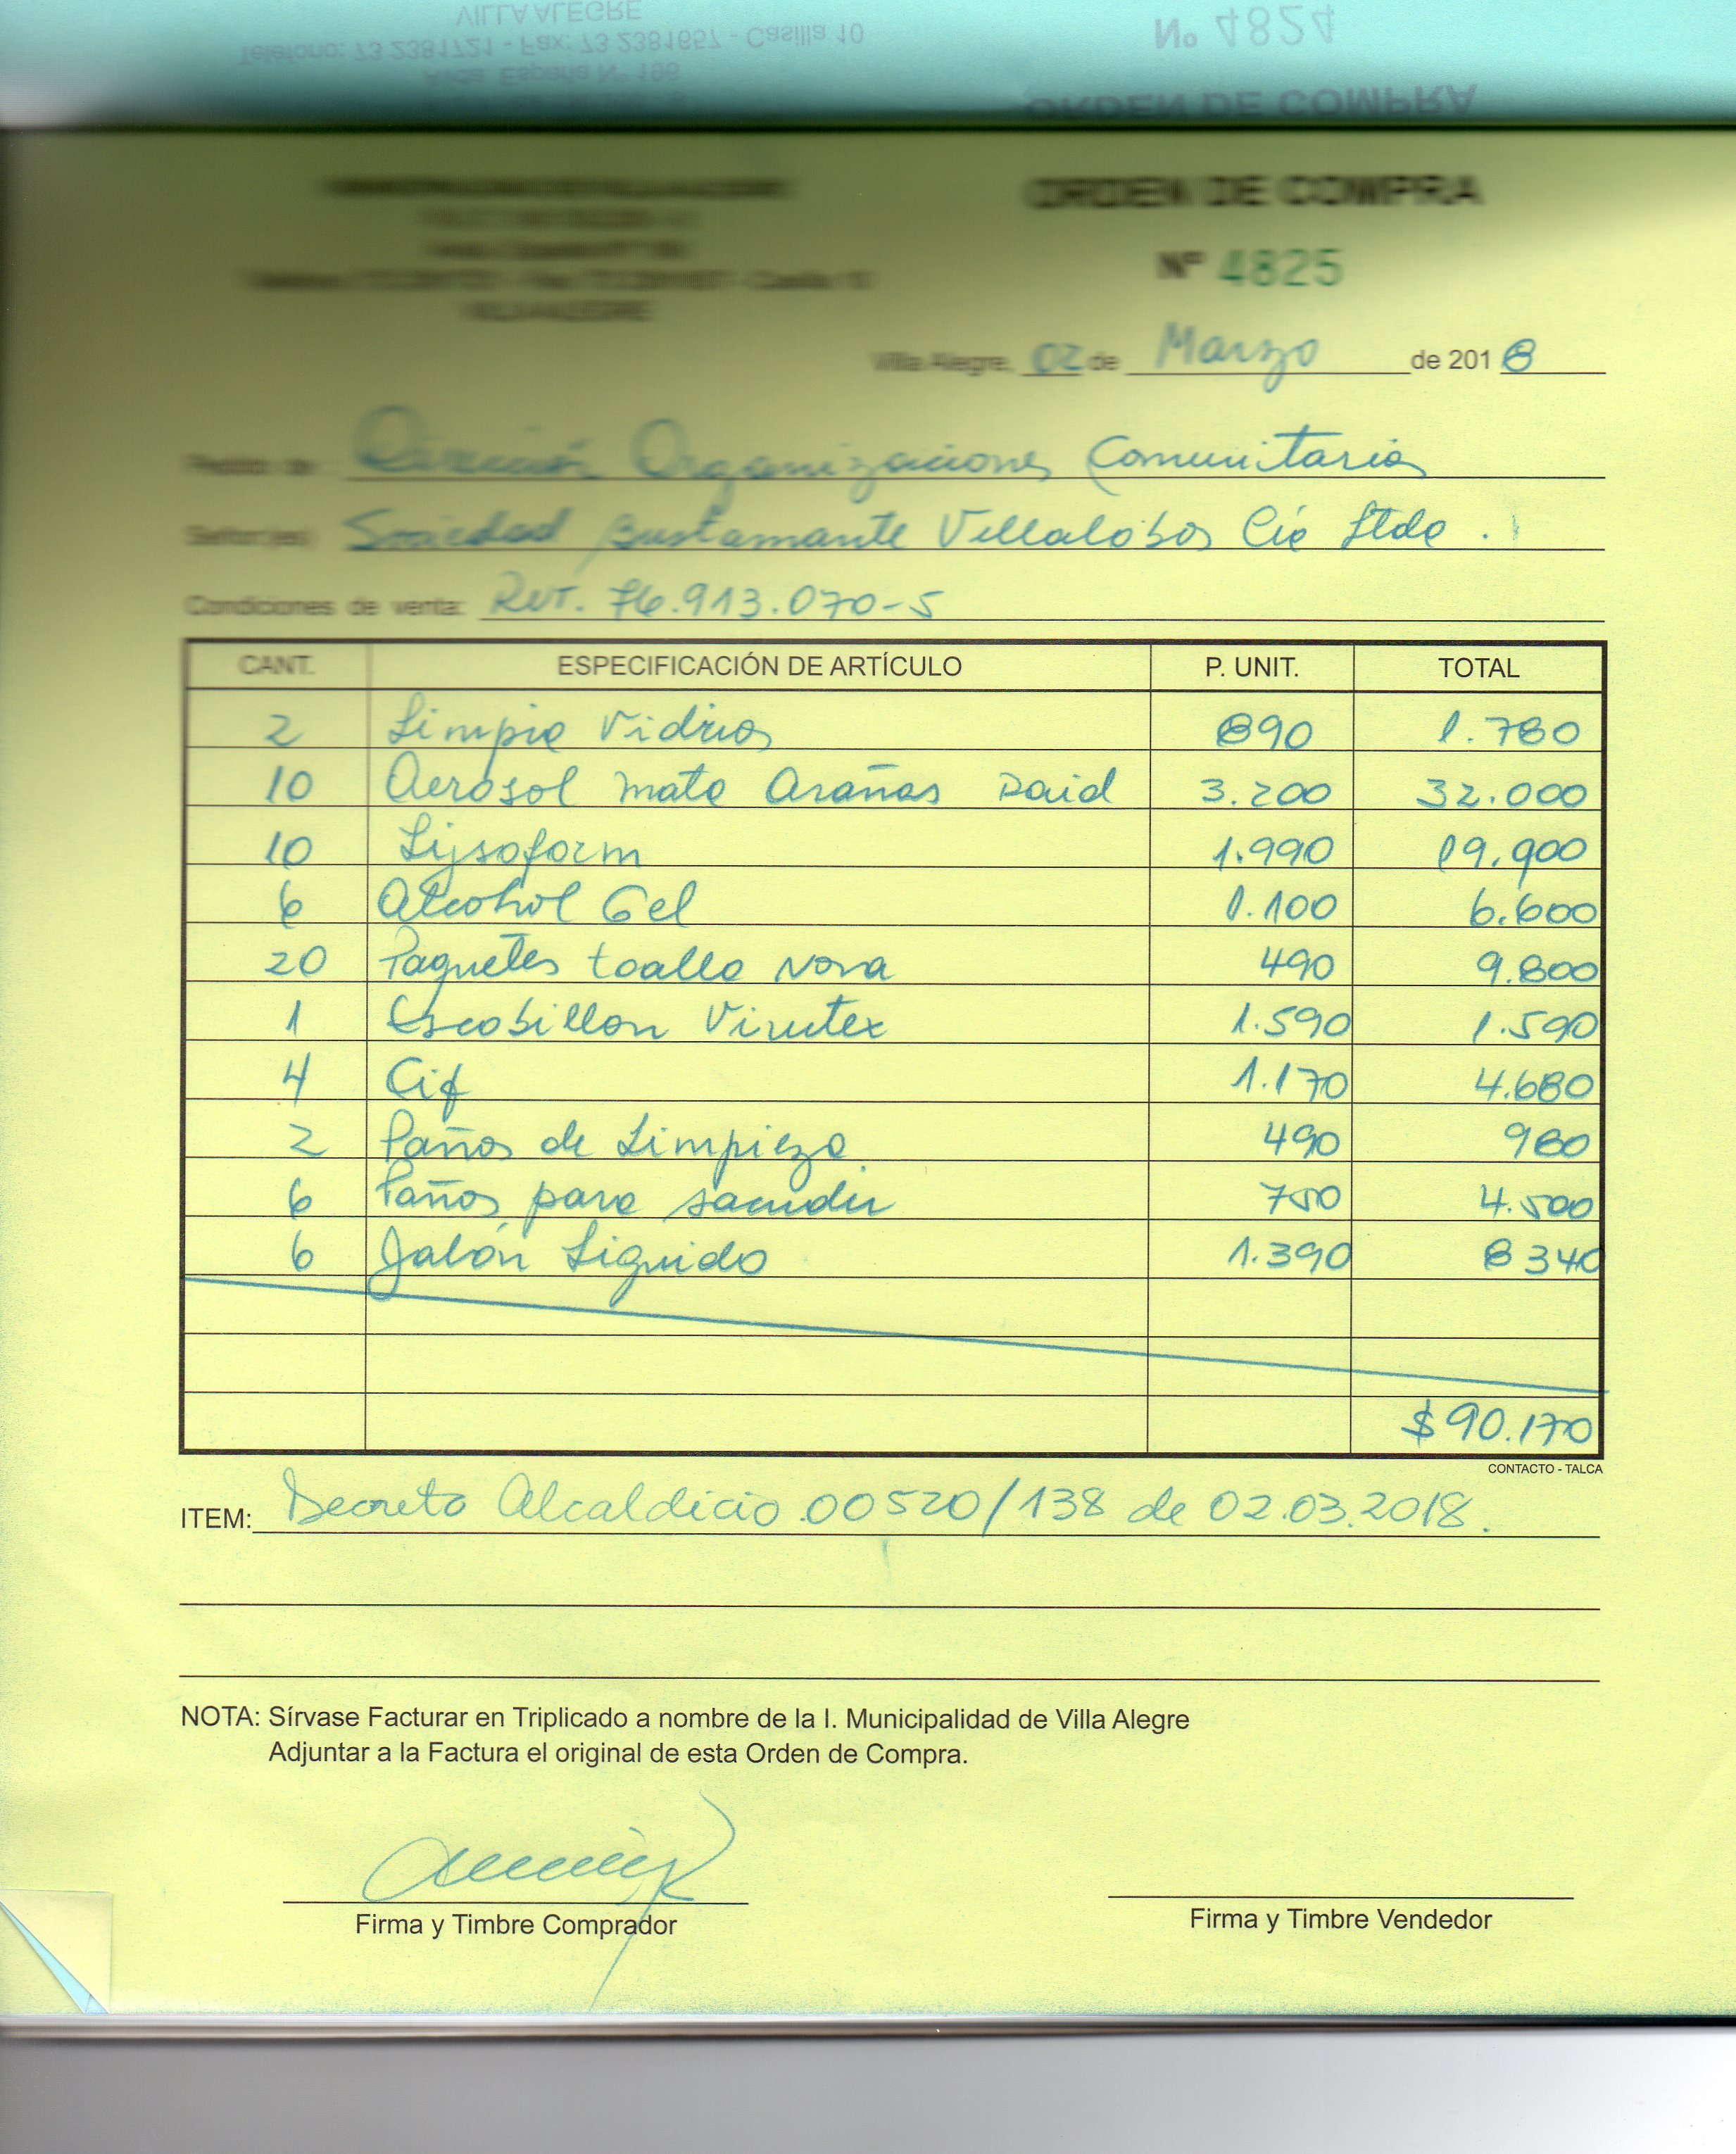 VILLA ALEGRE
Teléfono: 73 2381721 - Fax: 73 2381657 - Casilla 10
Avda. España Nº 196
Nº 4824
ORDEN DE COMPRA
ORDEN DE COMPRA
Nº 4825
VILLA ALEGRE
Villa Alegre, 02 de Marzo de 2018
Pedido de: Dirección Organizaciones Comunitarias
Señor(es) Sociedad Bustamante Villalobos Cía Ltda.
Condiciones de venta: Rut. 76.913.070-5
CANT. ESPECIFICACIÓN DE ARTÍCULO P. UNIT. TOTAL
2 Limpia Vidrios 890 1.780
10 Aerosol mata Arañas Raid 3.200 32.000
10 Lysoform 1.990 19.900
6 Alcohol Gel 1.100 6.600
20 Paquetes toalla Nova 490 9.800
1 Escobillon Virutex 1.590 1.590
4 Cif 1.170 4.680
2 Paños de Limpieza 490 980
6 Paños para sacudir 750 4.500
6 Jabón Liquido 1.390 8340
$90.170
CONTACTO - TALCA
ITEM: Decreto Alcaldicio 00520/138 de 02.03.2018.
NOTA: Sírvase Facturar en Triplicado a nombre de la I. Municipalidad de Villa Alegre
Adjuntar a la Factura el original de esta Orden de Compra.
Firma y Timbre Comprador Firma y Timbre Vendedor